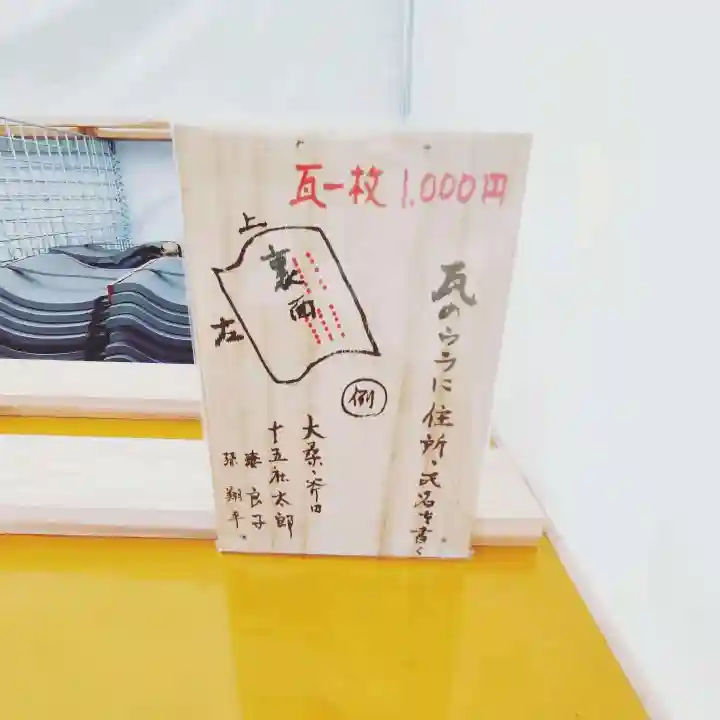 瓦一枚 1,000円
瓦のうらに住所・氏名を書く
上
左
裏面
例
大桑・斉田
十五社太郎
妻 良子
孫 翔平